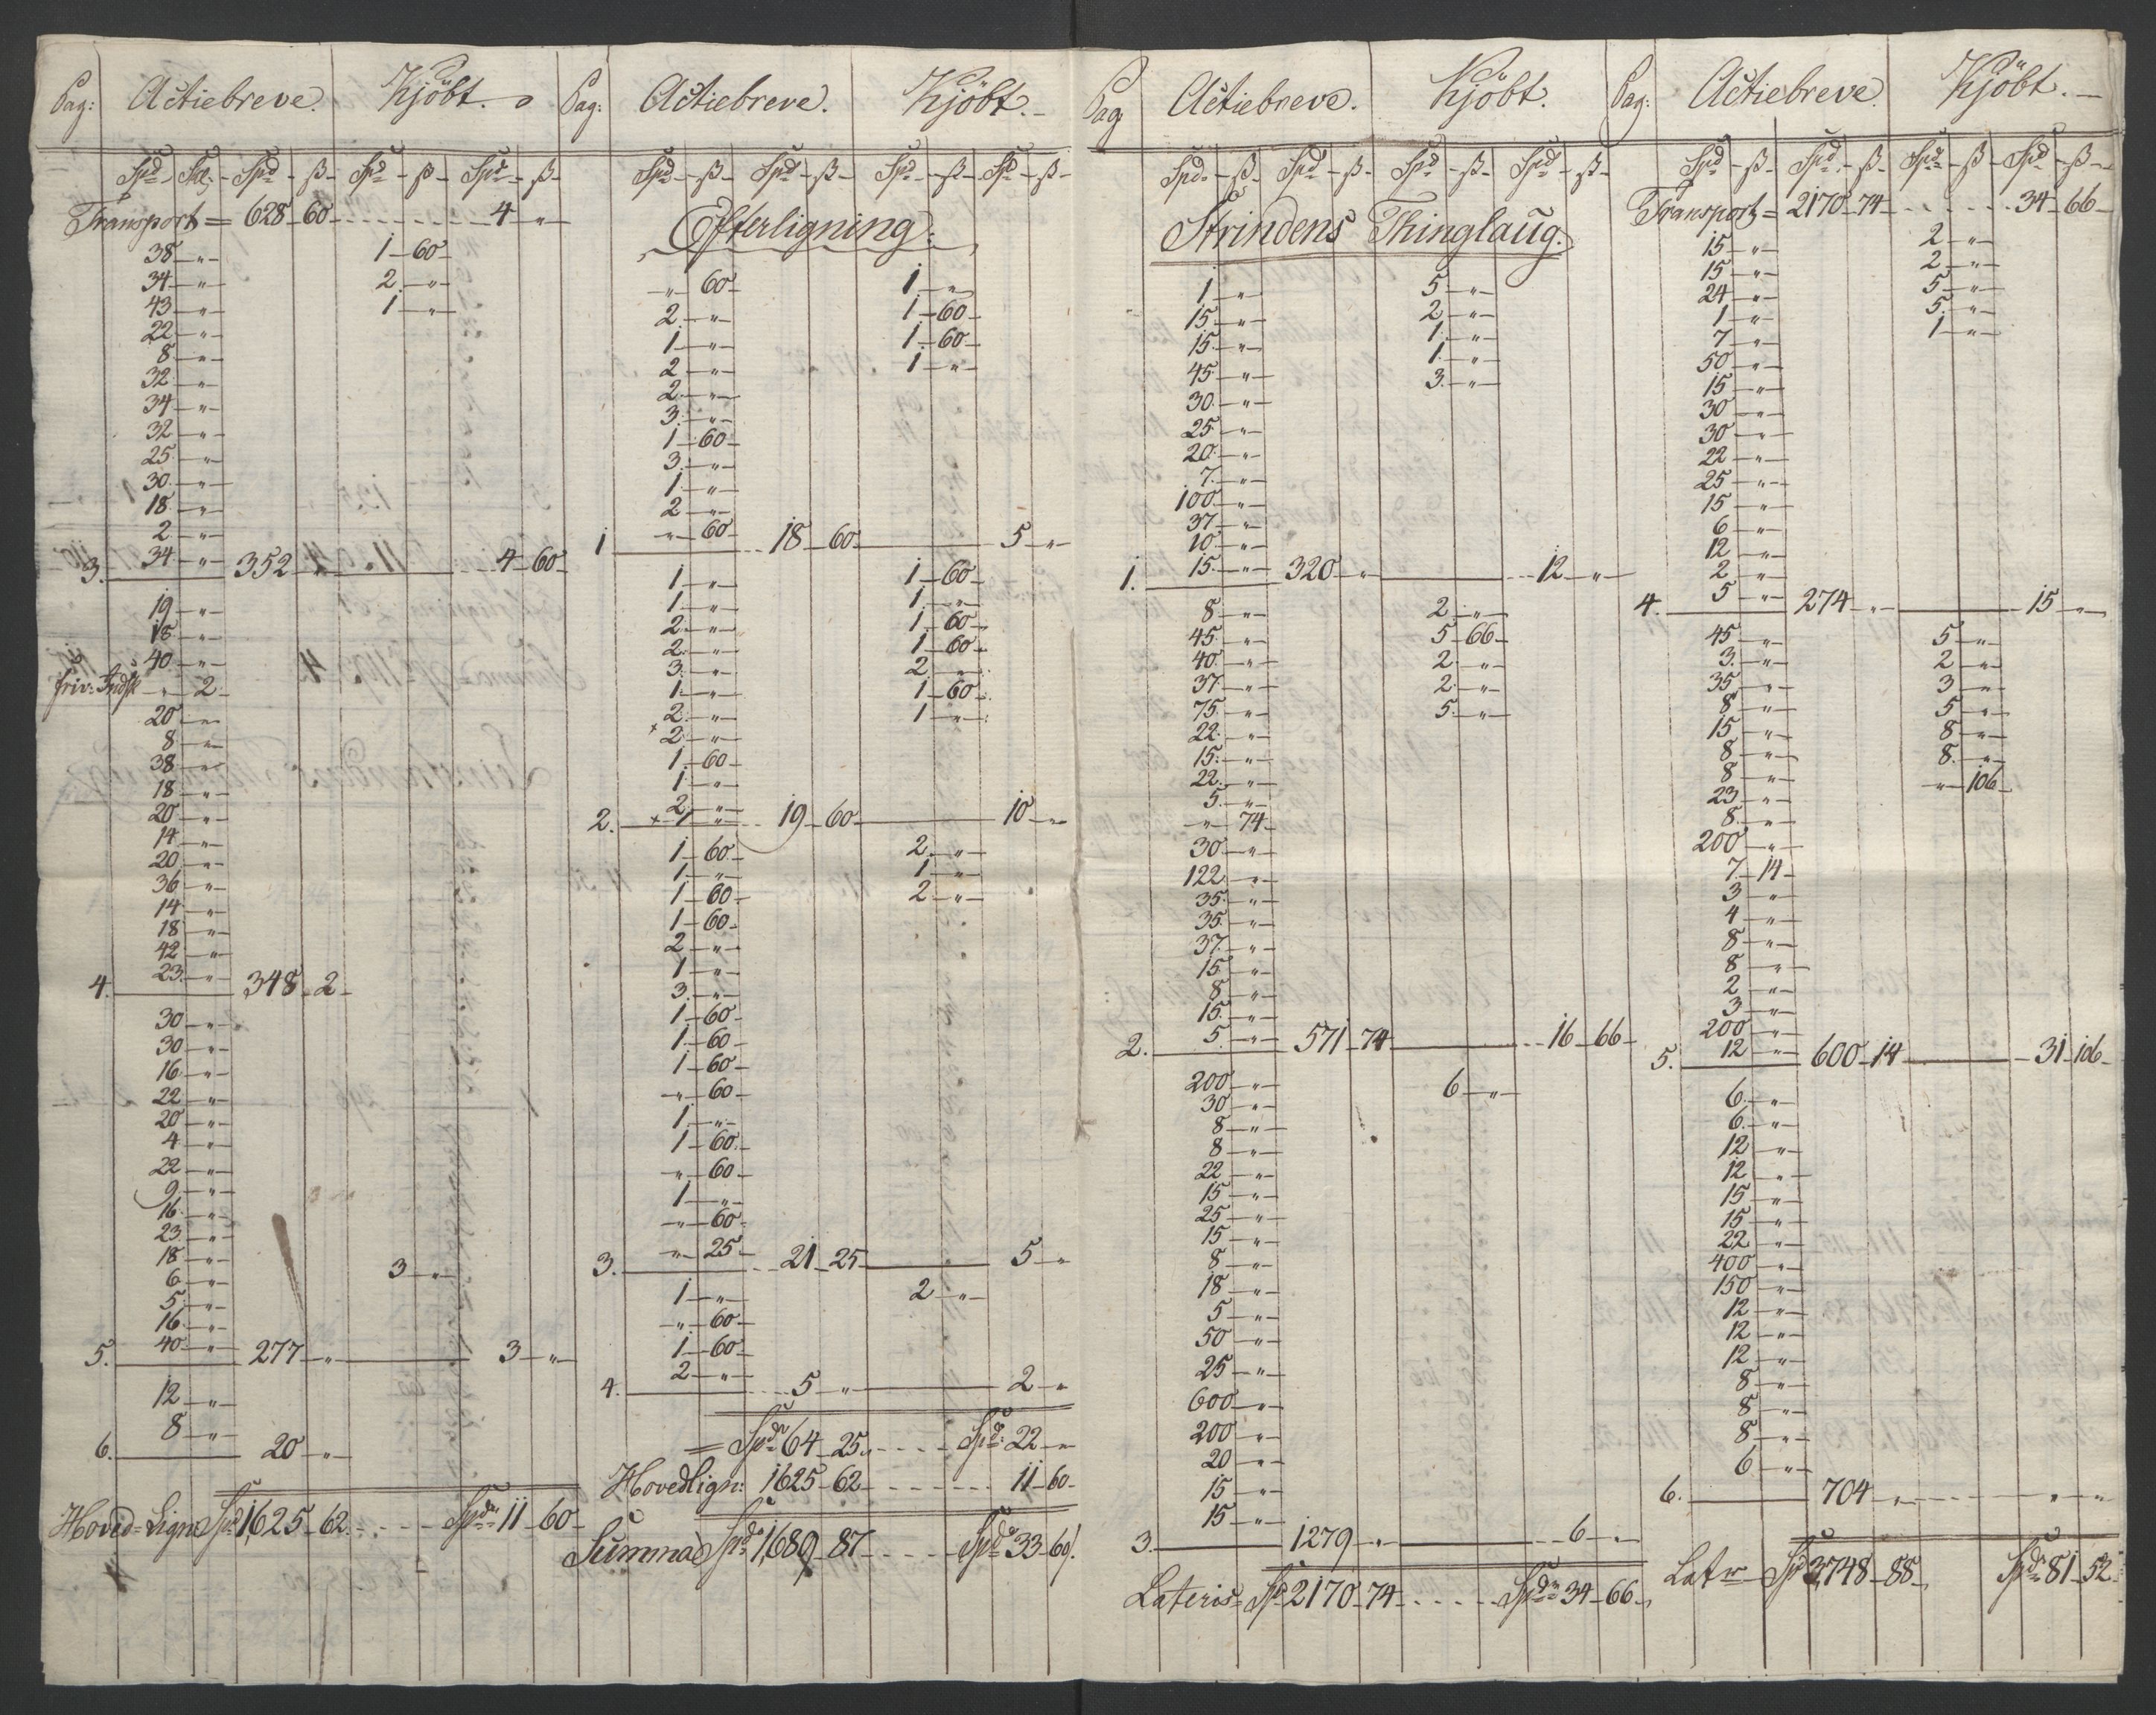 Pag: Actiebreve. Kjöbt.
Spd Sk. Spd ß Spd ß Spd ß
Transport = 628 60 4 "
38 " 1 60
34 " 2 "
43 " 1 "
22 "
8 "
32 "
34 "
32 "
25 "
30 "
18 "
2 "
3. 34 " 352 " 4 60
19 "
18 "
40 "
friv: Indsk " 2
20 "
8 "
38 "
18 "
20 "
14 "
20 "
36 "
14 "
18 "
42 "
4. 23 " 348 2
30 "
30 "
16 "
22 "
20 "
4 "
22 "
9 "
16 "
23 "
18 "
6 " 3 "
5 "
16 "
5. 40 " 277 " 3 "
12 "
6. 8 " 20 "
Hoved-Lign: Spd 1625 62 Spdr 11 60
Pag: Actiebreve. Kjöbt.
Spd ß Spd ß Spd ß Spd ß
Efterligning:
" 60 1 "
2 " 1 60
1 " 1 60
2 " 1 "
2 "
3 "
1 60
3 "
1 "
2 "
1 " 60 18 60 5 "
1 " 1 60
1 " 1 "
2 " 1 60
2 " 1 60
3 " 2 "
1 " 1 60
2 " 1 "
x 2 "
1 60
1 "
2 "
2. x 1 " 19 60 10 "
1 60 2 "
1 " 1 "
1 60 2 "
1 60
2 "
1 "
3 "
1 60
1 60
1 60
" 60
1 "
1 60
" 60
1 "
" 60
3. " 25 21 25 5 "
1 " 2 "
" 60
1 60
4. 2 " 5 " 2 "
= Spdr 64 25 Spd: 22 "
Hovedlign: 1625 62 11 60
Summa Spdr 1689 87 Spdr 33 60
Pag Actiebreve. Kjöbt.
Spd ß Spd ß Spd ß Spd ß
Strindens Thinglaug.
1 " 5 "
15 " 2 "
15 " 1 "
45 " 1 "
30 " 3 "
25 "
20 "
7 "
100 "
37 "
10 "
1. 15 " 320 " 12 "
8 " 2 "
45 " 5 66
40 " 2 "
37 " 2 "
75 " 5 "
22 "
15 "
22 "
5 "
" 74
30 "
122 "
35 "
35 "
37 "
15 "
8 "
15 "
2. 5 " 571 74 16 66
200 " 6 "
30 "
8 "
8 "
22 "
15 "
25 "
15 "
8 "
18 "
5 "
50 "
25 "
600 "
200 "
20 "
15 "
15 "
3. 1279 " 6 "
Lateris Spd 2170 74 Spdr 34 66
Pag: Actiebreve. Kjöbt.
Spd ß Spd ß Spd ß Spd ß
Transport = 2170 74 34 66
15 " 2 "
15 " 2 "
24 " 5 "
1 " 5 "
7 " 1 "
50 "
15 "
30 "
30 "
22 "
25 "
15 "
6 "
12 "
2 "
4. 5 " 274 " 15 "
45 " 5 "
3 " 2 "
35 " 3 "
8 " 5 "
15 " 8 "
8 " 8 "
8 " " 106
23 "
8 "
200 "
7 14
3 "
4 "
8 "
8 "
2 "
3 "
200 "
5. 12 " 600 14 31 106
6 "
6 "
12 "
12 "
15 "
15 "
22 "
400 "
150 "
12 "
12 "
12 "
8 "
8 "
8 "
6 "
6. 704 " " "
Latr Spd 3748 88 Spdr 81 52